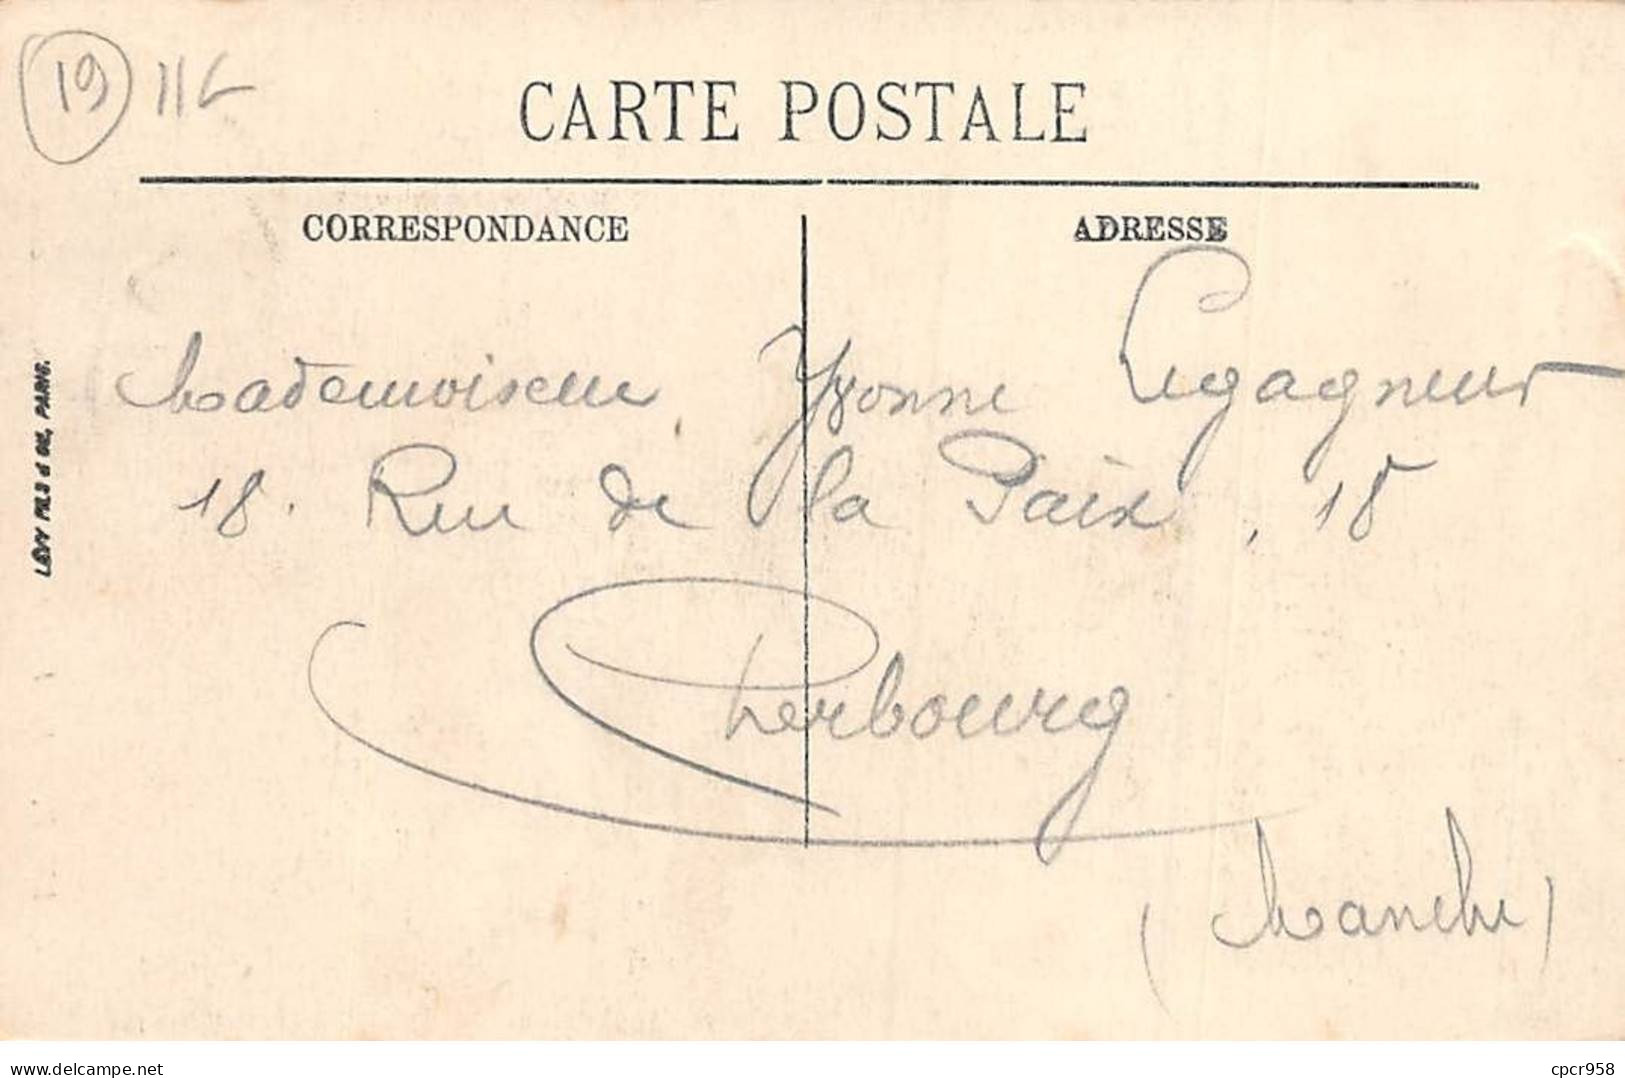 19 116
CARTE POSTALE
CORRESPONDANCE
ADRESSE
LÉVY FILS & CIE, PARIS.
Mademoiselle Yvonne Legagneur
18. Rue de la Paix, 18
Cherbourg
(Manche)
www.delcampe.net
cpcr958